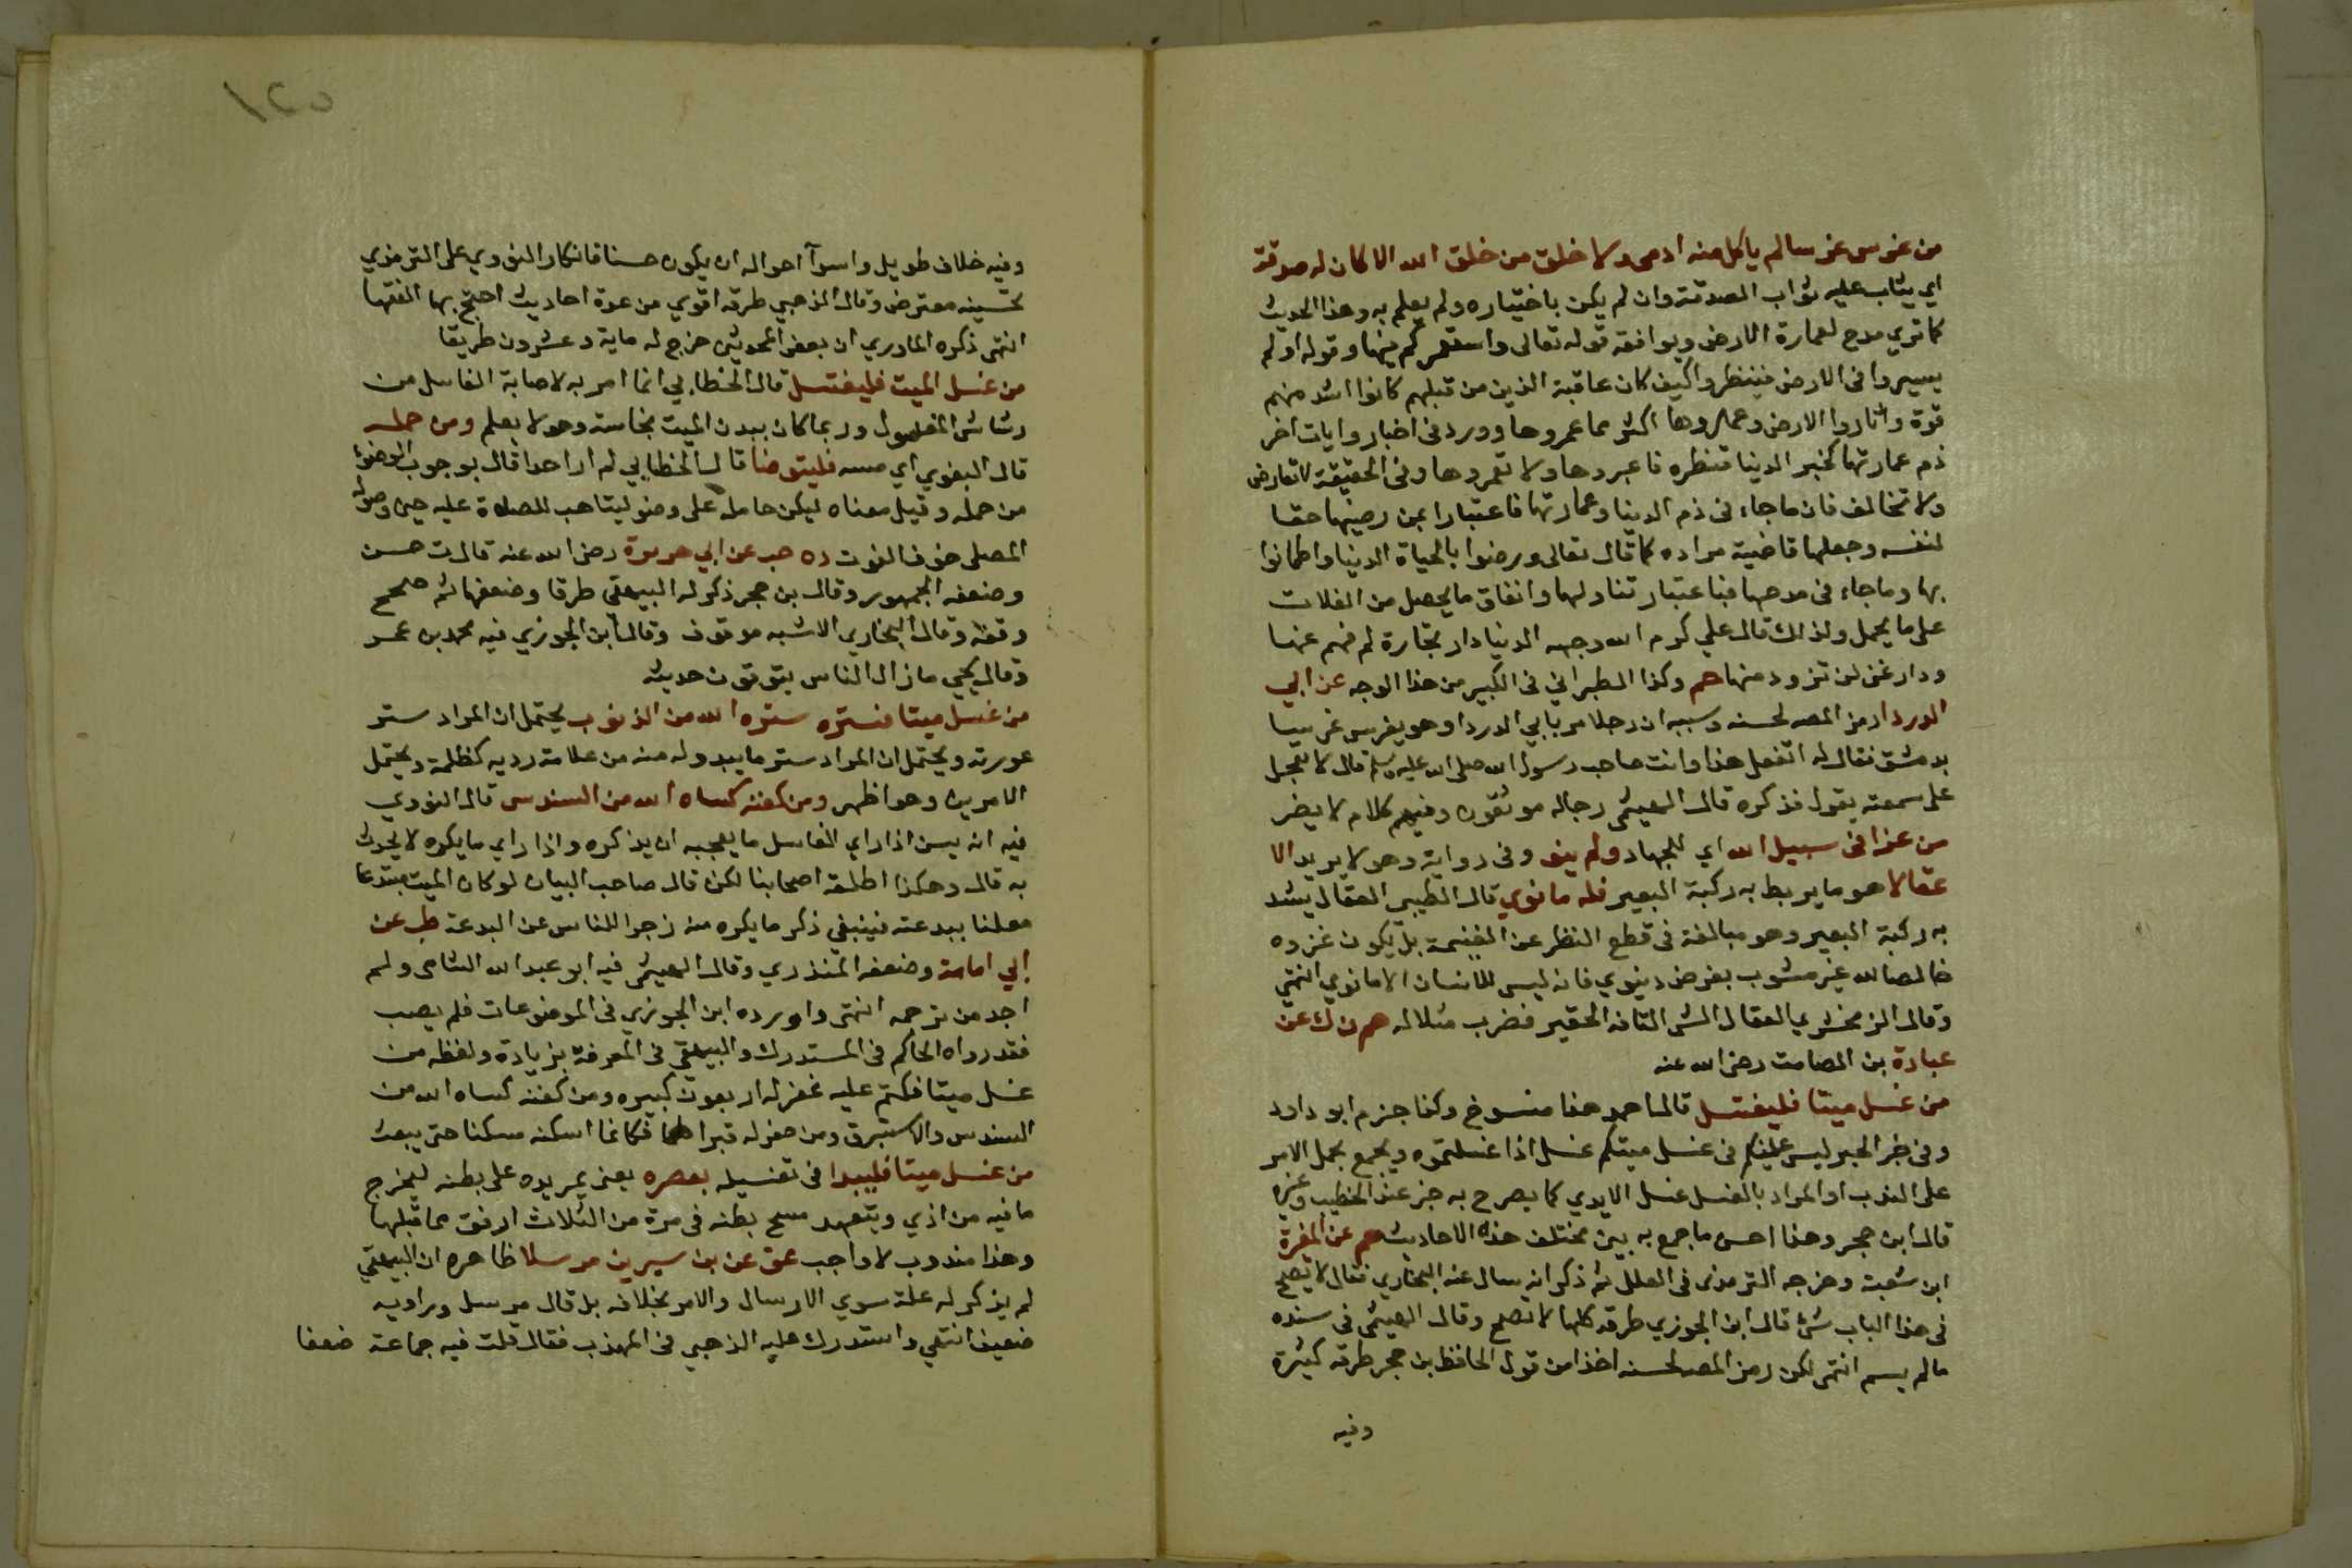 من غرس غرسا لم ياكل منه ادمي ولا خلق من خلق الله الا كان له صدقة
اي يثاب عليه ثواب الصدقة وان لم يكن باختياره ولم يعلم به وهذا الحديث
كما تري مدح لعمارة الارض ويوافقه قوله تعالى واستعمركم فيها وقوله اولم
يسيروا فى الارض فينظروا كيف كان عاقبة الذين من قبلهم كانوا اشد منهم
قوة واثاروا الارض وعمروها اكثر مما عمروها وورد فى اخبار وايات اخر
ذم عمارتها كخبر الدنيا قنطره فاعبروها ولا تعمروها وفى الحقيقة لا تعارض
ولا تخالف فان ماجاء فى ذم الدنيا وعمارتها فاعتبارا بمن رضيها حقا
لنفسه وجعلها قاضية مراده كما قال تعالى ورضوا بالحياة الدنيا واطمانوا
بها وماجاء فى مدحها فباعتبار تناولها وانفاق ما يحصل من الغلات
على ما يحمل ولذلك قال علي كرم الله وجهه الدنيا دار تجارة لمن فهم عنها
ودار غنى لمن تزود منها حم وكذا الطبراني فى الكبير من هذا الوجه عن ابي
الدرداء رمز المص لحسنه وسببه ان رجلا مر بابي الدرداء وهو يغرس غرسا
بدمشق فقال له اتفعل هذا وانت صاحب رسول الله صلى الله عليه وسلم قال لا تعجل
على سمعته يقول فذكره قال الهيثمى رجاله موثقون وفيهم كلام لا يضر
من غزا فى سبيل الله اي للجهاد ولم ينو وفى رواية وهو لا يريد الا
عقالا هو ما يربط به ركبة البعير فله ما نوي قال الطيبى العقال يشد
به ركبة البعير وهو مبالغة فى قطع النظر عن الغنيمة بل يكون غزوه
خالصا لله غير مشوب بغرض دنيوي فانه ليس للانسان الا ما نوي انتهى
وقال الزمخشري العقال الشى التافه الحقير فضرب مثلا له حم ن ك عن
عبادة بن الصامت رضى الله عنه
من غسل ميتا فليغتسل قال احمد هذا منسوخ وكذا جزم ابو داود
وفى خبر الحبر ليس عليكم فى غسل ميتكم غسل اذا غسلتموه ويجمع بحمل الامر
على الندب او المراد بالغسل غسل الايدي كما يصرح به خبر عند الخطيب وغيره
قال ابن حجر وهذا احسن ما جمع به بين مختلف هذه الاحاديث حم عن المغيرة
ابن شعبة وخرجه الترمذى فى العلل ثم ذكر انه سال عنه البخاري فقال لا يصح
فى هذا الباب شئ قال ابن الجوزي طرقه كلها لا تصح وقال الهيثمى فى سنده
ما لم يسم انتهى لكن رمز المص لحسنه اخذا من قول الحافظ بن حجر طرقه كثيرة
وفيه
١٢٥
وفيه خلاف طويل واسوأ احواله ان يكون حسنا فانكار النووي على الترمذي
تحسينه معترض وقال الذهبي طرقه اقوي من عدة احاديث احتج بها الفقها
انتهى ذكره الماوردي ان بعض المحدثين خرج له ماية وعشرون طريقا
من غسل الميت فليغتسل قال الخطابي انما امر به لاصابة الغاسل من
رشاش المغسول وربما كان ببدن الميت نجاسة وهو لا يعلم ومن حمله
قال البغوي اي مسه فليتوضا قال الخطابي لم ار احدا قال بوجوب الوضوء
من حمله وقيل معناه ليكن حامله على وضو ليتاهب للصلاة عليه حين وصوله
المصلى خوف الفوت د ه حب عن ابي هريرة رضى الله عنه قال ت حسن
وضعفه الجمهور وقال بن حجر ذكر له البيهقى طرقا وضعفها ثم صحح
وقفه وقال البخاري الاشبه موقوف وقال ابن الجوزي فيه محمد بن عمر
وقال يحيي ما زال الناس يتوقون حديثه
من غسل ميتا فستره ستره الله من الذنوب يحتمل ان المراد ستر
عورته ويحتمل ان المراد ستر ما يبدو له منه من علامة رديه كظلمة ويحتمل
الامرين وهو اظهر ومن كفنه كساه الله من السندس قال النووي
فيه انه يسن اذا راي الغاسل ما يعجبه ان يذكره واذا راي ما يكره لا يحدث
به قال وهكذا اطلقه اصحابنا لكن قال صاحب البيان لو كان الميت مبتدعا
معلنا ببدعته فينبغي ذكر ما يكره منه زجرا للناس عن البدعة طب عن
ابي امامة وضعفه المنذري وقال الهيثمى فيه ابو عبد الله الشامى ولم
اجد من ترجمه انتهى واورده ابن الجوزي فى الموضوعات فلم يصب
فقد رواه الحاكم فى المستدرك والبيهقى فى المعرفة بزيادة ولفظه من
غسل ميتا فكتم عليه غفر له اربعون كبيره ومن كفنه كساه الله من
السندس والاستبرق ومن حفر له قبرا فكانما اسكنه مسكنا حتى يبعث
من غسل ميتا فليبدا فى تغسيله بعصره يعنى يمر يده على بطنه ليخرج
ما فيه من اذي ويتعهد مسح بطنه فى مرة من الثلاث ارفق مما قبلها
وهذا مندوب لا واجب هق عن بن سيرين مرسلا ظاهره ان البيهقي
لم يذكر له علة سوي الارسال والامر بخلافه بل قال مرسل وراويه
ضعيف انتهي واستدرك عليه الذهبي فى المهذب فقال قلت فيه جماعة ضعفا